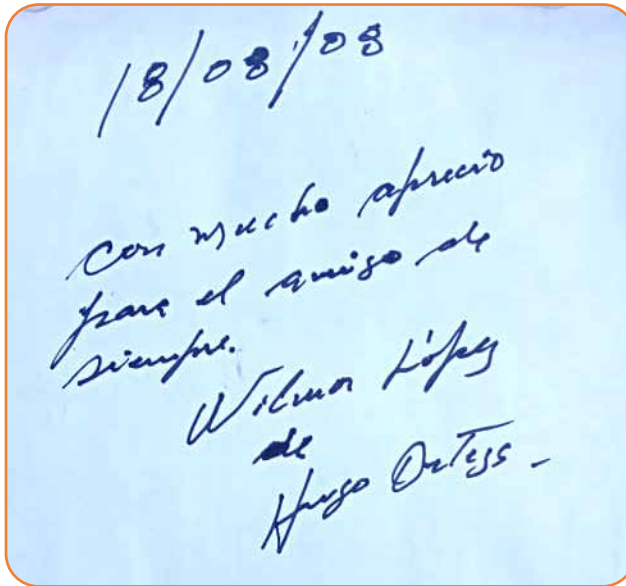 18/08/08
Con mucho aprecio
para el amigo de
siempre.
Wilmor López
de
Hugo Ortega -